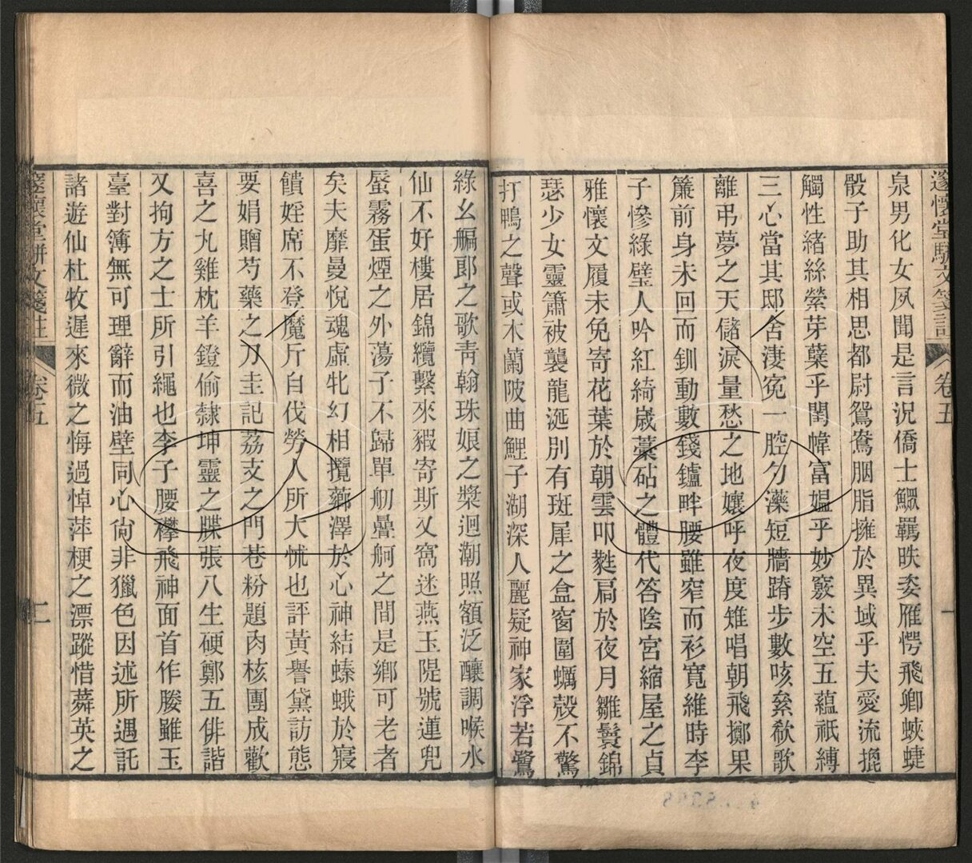 邃懷堂駢文箋註 卷五 一
泉男化女夙聞是言況僑士鰥羈昳委雁愕飛卿蛺蜨
骰子助其相思都尉鴛鴦胭脂擁於異域乎夫愛流搵
觸性緒絲縈芽蘖乎閨幃富媼乎妙竅未空五蘊祇縛
三心當其邸舍淒寃一腔勿藻短牆踦步數咳絫欷歌
離弔夢之天儲淚量愁之地孃呼夜度雉唱朝飛擲果
簾前身未回而釧動數錢鑪畔腰雖窄而衫寬維時李
子慘綠璧人吟紅綺歲藁砧之體代答陰宮縮屋之貞
雅懷文履未免寄花葉於朝雲叩甤扃於夜月雛鬟錦
瑟少女靈簫被襲龍涎別有斑犀之盒窗圍蠣殼不驚
打鴨之聲或木蘭陂曲鯉子湖深人麗疑神家浮若鷺
綠幺艑郞之歌靑翰珠娘之槳迴潮照額泛釀調喉水
仙不好樓居錦纜繫來豭寄斯又窩迷燕玉隄號蓮兜
蜃霧蛋煙之外蕩子不歸單舠疊舸之間是鄉可老者
矣夫靡曼悅魂虛牝幻相攬薌澤於心神結螓蛾於寢
饋婬席不登魔斤自伐勞人所大怵也評黃譽黛訪態
要娟贈芍藥之刀圭記荔支之門巷粉題肉核團成歡
喜之丸雞枕羊鐙偷隸坤靈之牒張八生硬鄭五俳諧
又拘方之士所引繩也李子腰襻飛神面首作媵雖玉
臺對簿無可理辭而油壁同心尙非獵色因述所遇託
諸遊仙杜牧遲來微之悔過悼萍梗之漂蹤惜蕣英之
邃懷堂駢文箋註 卷五 二